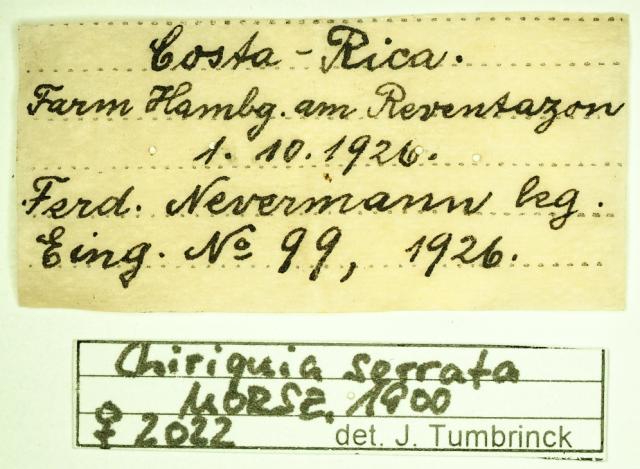 Costa-Rica.
Farm Hambg. am Reventazon
1. 10. 1926.
Ferd. Nevermann leg.
Eing. № 99, 1926.
Chiriquia serrata
MORSE, 1900
♀ 2022 det. J. Tumbrinck